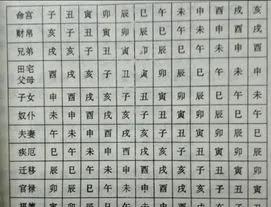 命宫 子 丑 寅 卯 辰 巳 午 未 申 酉 戌 亥
财帛 亥 子 丑 寅 卯 辰 巳 午 未 申 酉 戌
兄弟 戌 亥 子 丑 寅 卯 辰 巳 午 未 申 酉
田宅
父母 酉 戌 亥 子 丑 寅 卯 辰 巳 午 未 申
子女 申 酉 戌 亥 子 丑 寅 卯 辰 巳 午 未
奴仆 未 申 酉 戌 亥 子 丑 寅 卯 辰 巳 午
夫妻 午 未 申 酉 戌 亥 子 丑 寅 卯 辰 巳
疾厄 巳 午 未 申 酉 戌 亥 子 丑 寅 卯 辰
迁移 辰 巳 午 未 申 酉 戌 亥 子 丑 寅 卯
官禄 卯 辰 巳 午 未 申 酉 戌 亥 子 丑 寅